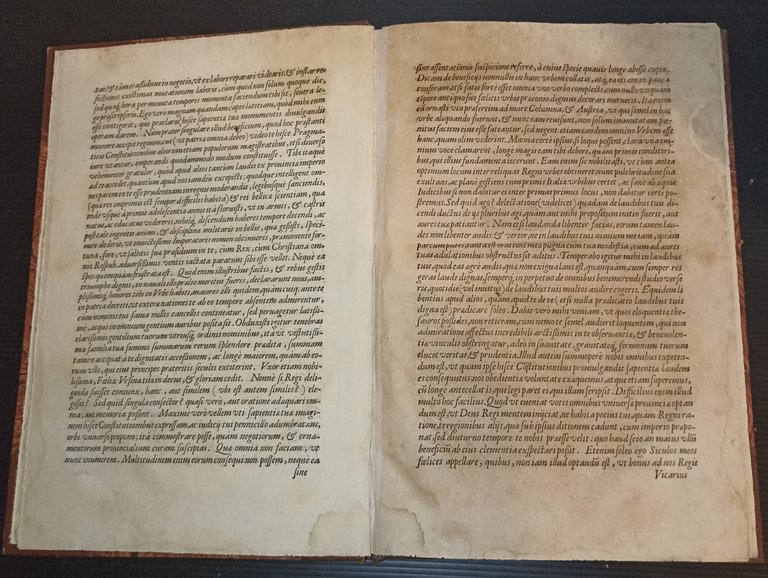 tas, & tam er assiduus in negocio, vt ex labore reparari videaris, & instar re-
fectionis existimas mutationem laboris, cum quid non solum quoque die,
sed quaq; hora per minuta temporis momenta faciendum tibi sit, seuera le-
ge præscripseris. Ego vero magnam quandam capio lætitiam, quod mihi eum
esse contigerit, qui præclaris hisce sapientiæ tuæ monumentis diuulgandis
operam darem. Nam præter singulare illud beneficium, quod hoc præstanti
munere accipit regnum et (vt patria omnia debeo) video te hisce Pragma-
ticis Constitutionibus aliorum etiam populorum magistratibus, etsi diuerso
iure vtantur, imperandi quodammodo modum constituisse. Tibi itaque
vehementer gratulor, quod apud alios tantum laudis ex prouincia imperio
ad te accedit, quantum apud nos iamdiu excepisti, quodque intelligent om-
nes parem in te esse prudentiam in regnis moderandis, legibusque sanciendis,
(quæ res imprimis est semper difficilis habita) & rei bellicæ scientiam, qua
inde vsque à primis adolescentiæ annis ita floruisti, vt in armis, & castris
natus, ac educatus videreris, nihilq; discendum haberes tempore decendi, ac
post tale ingenitæ animi, & disciplinæ militaris in bellis, quæ gessisti, speci-
men dederis, vt inuictissimi Imperatoris nomen obtinueris, præmonente for-
tuna, fore, vt salutis suæ præsidium in te, cum Rex, cum Christiana om-
nis Respub. aduersissimis ventis iactata paratum sibi esse vellet. Neque ea
spes quemquam frustrata est. Quod enim illustribus factis, & rebus gestis
triumpho dignis, in nauali illo prælio meritus fueris, declararunt nunc am-
plissimiq; honores tibi in Vrbe habiti, maiores illi quidem, quàm cuiq; ante te
in patria decreti, vt externa nationes te ab eo tempore absentem admirentur,
cum nominis tui fama nullis cancellis contineatur, sed peruagetur latissi-
me, atque in omnium gentium auribus posita sit. Obduxisti igitur tenebras
clarissimis gentilium tuorum virtusq; ordinis nominibus, ita vt vetustissi-
ma familia tua summo summarum rerum splendore prædita, summam
tamen accipiat à te dignitatis accessionem, ac longe maiorem, quàm ab eo-
rum vllo, qui eius principes præteritis sæculis extiterint. Vxor etiam nobi-
lissima, Felix Vrsina tibi in decus, & gloriam cedit. Nonne si Regi deli-
genda fuisset coniunx, hanc, aut similem (vbi est autem similis?) ele-
gisset? Sed quid singula consector? quasi verò, aut oratione adæquari om-
nia, aut memoria possent. Maxime verò vellem vt sapientiæ tuæ imagi-
nem hisce Constitutionibus expressam, ac iudicij tui pennicillo adumbratam,
orbi vniuerso propono; ita commostrare posse, quàm negotiorum, & orna-
mentorum prouincialium curam suscipias. Quæ omnia non faciam, vt
nunc enumerem. Multitudinem enim eorum consequi non possem, neque ea
sine
sine assentationis suspicione referre, à cuius specie quauis longe abesse cupio.
Dicam de beneficijs nonnullis in hanc vrbem collatis, atq; ea etiam in pauca
conferam etsi satis forte esset omnia vno verbo complecti; cum nullo vnquam
tempore antiquo suo fœlicis vrbis præconio dignius decorari meruerit. Ita enim
eam ornasti via præsertim ad mare Columna, & Austria, vt qui semel in hac
vrbe aliquando fuerint, & nunc eam reuisunt, non solum immutatam pa-
nitus faciem eius esse fateantur, sed negent etiam eandem omnino Vrbem esse
hanc, quam olim viderint. Maria certè ipsius, si loqui possent, clara viva om-
nium voce clamarent, longe magis eam tibi debere, quàm primis conditori-
bus, qui illius fundamenta iecerunt. Eam enim sic nobilitasti, vt cum antea
optimum locum inter reliquas Regni vrbes obtineret: nunc pulchritudine sua
exultans, ac plane gestiens cum primis Italiæ vrbibus certet, ac sanè ab æquis
Iudicibus si non dabitur ei inter primas primus locus, non dabitur certè po-
stremus. Sed quid ago? delectatione (videlicet) quadam de laudibus tuis di-
cendi ductus de ijs pluribus aga, quàm aut mihi propositum initio fuerit, aut
aures tuæ patiantur. Nam etsi laudanda libenter facias, eorum tamen lau-
des non libenter audis, & vereor, ne in laudibus tuis minus modestè, quàm
parcum putes, tanta est orationi mea pugna cum tua modestia, cum ad aures
tuas adulationibus obstructus sit aditus. Temperabo igitur mihi in laudibus
tuis, quod ea agere audis, quæ non exigua laus est, quamquam, cum semper res
geras laude dignas, semperq; in perpetuo de omnibus benemerendi studio verse-
ris, quodie (vel inuitus) de laudibus tuis multos audire cogeris. Equidem li-
bentius apud alios, quàm apud te de te (etsi nulla prædicatio laudibus tuis
digna est) prædicare soleo. Dabis vero mihi veniam, vt quos eloquentia the-
sauros possides, non reticeam, cum nemo te semel audierit loquentem, qui non
admiratione affectus incredibili arctissimis in te obseruantiæ, & beneuolentiæ
vinculis obstringatur, adeò in suauitate, grauitateq; sermonum tuorum
elucet veritas & prudentia. Illud autem summopere nobis omnibus expeten-
dum est, vt quàm ipse hisce Constitutionibus promulgandis sapientiæ laudem
es consequutus, nos obedientiæ voluntate exæquemus, atque etiam superemus,
cum longe antecellat is, qui legi paret ei, qui illam scripsit. Difficilius enim illud
multo hoc facilius. Quod vt eueniat votis omnibus vniuersa prouincia optan-
dum est, vt Deus Regi mentem iniiciat, ne habita potius tuæ, quàm Regni ra-
tione, te regionibus alijs, quæ sub ipsius ditionem cadunt, cum imperio præpo-
nat, sed diuturno tempore te nobis præesse velit: quo haud scio an maius vllum
beneficium ab eius clementia exspectari possit. Etenim soleo ego Siculos meos
fœlices appellare, quibus, non iam illud optandum est, vt bonus ad nos Regis
Vicarius